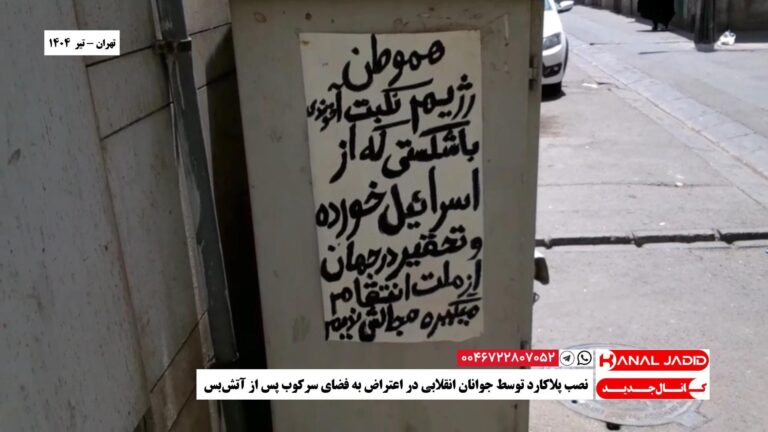 تهران - تیر ۱۴۰۴
هموطن
رژیم نکبت آخوندی
با شکستی که از
اسرائیل خورده
و تحقیر در جهان
از ملت انتقام
میگیره مجالش ندیم
۰۰۴۶۷۲۲۸۰۷۰۵۲
KANAL JADID
کانال جدید
نصب پلاکارد توسط جوانان انقلابی در اعتراض به فضای سرکوب پس از آتش‌بس